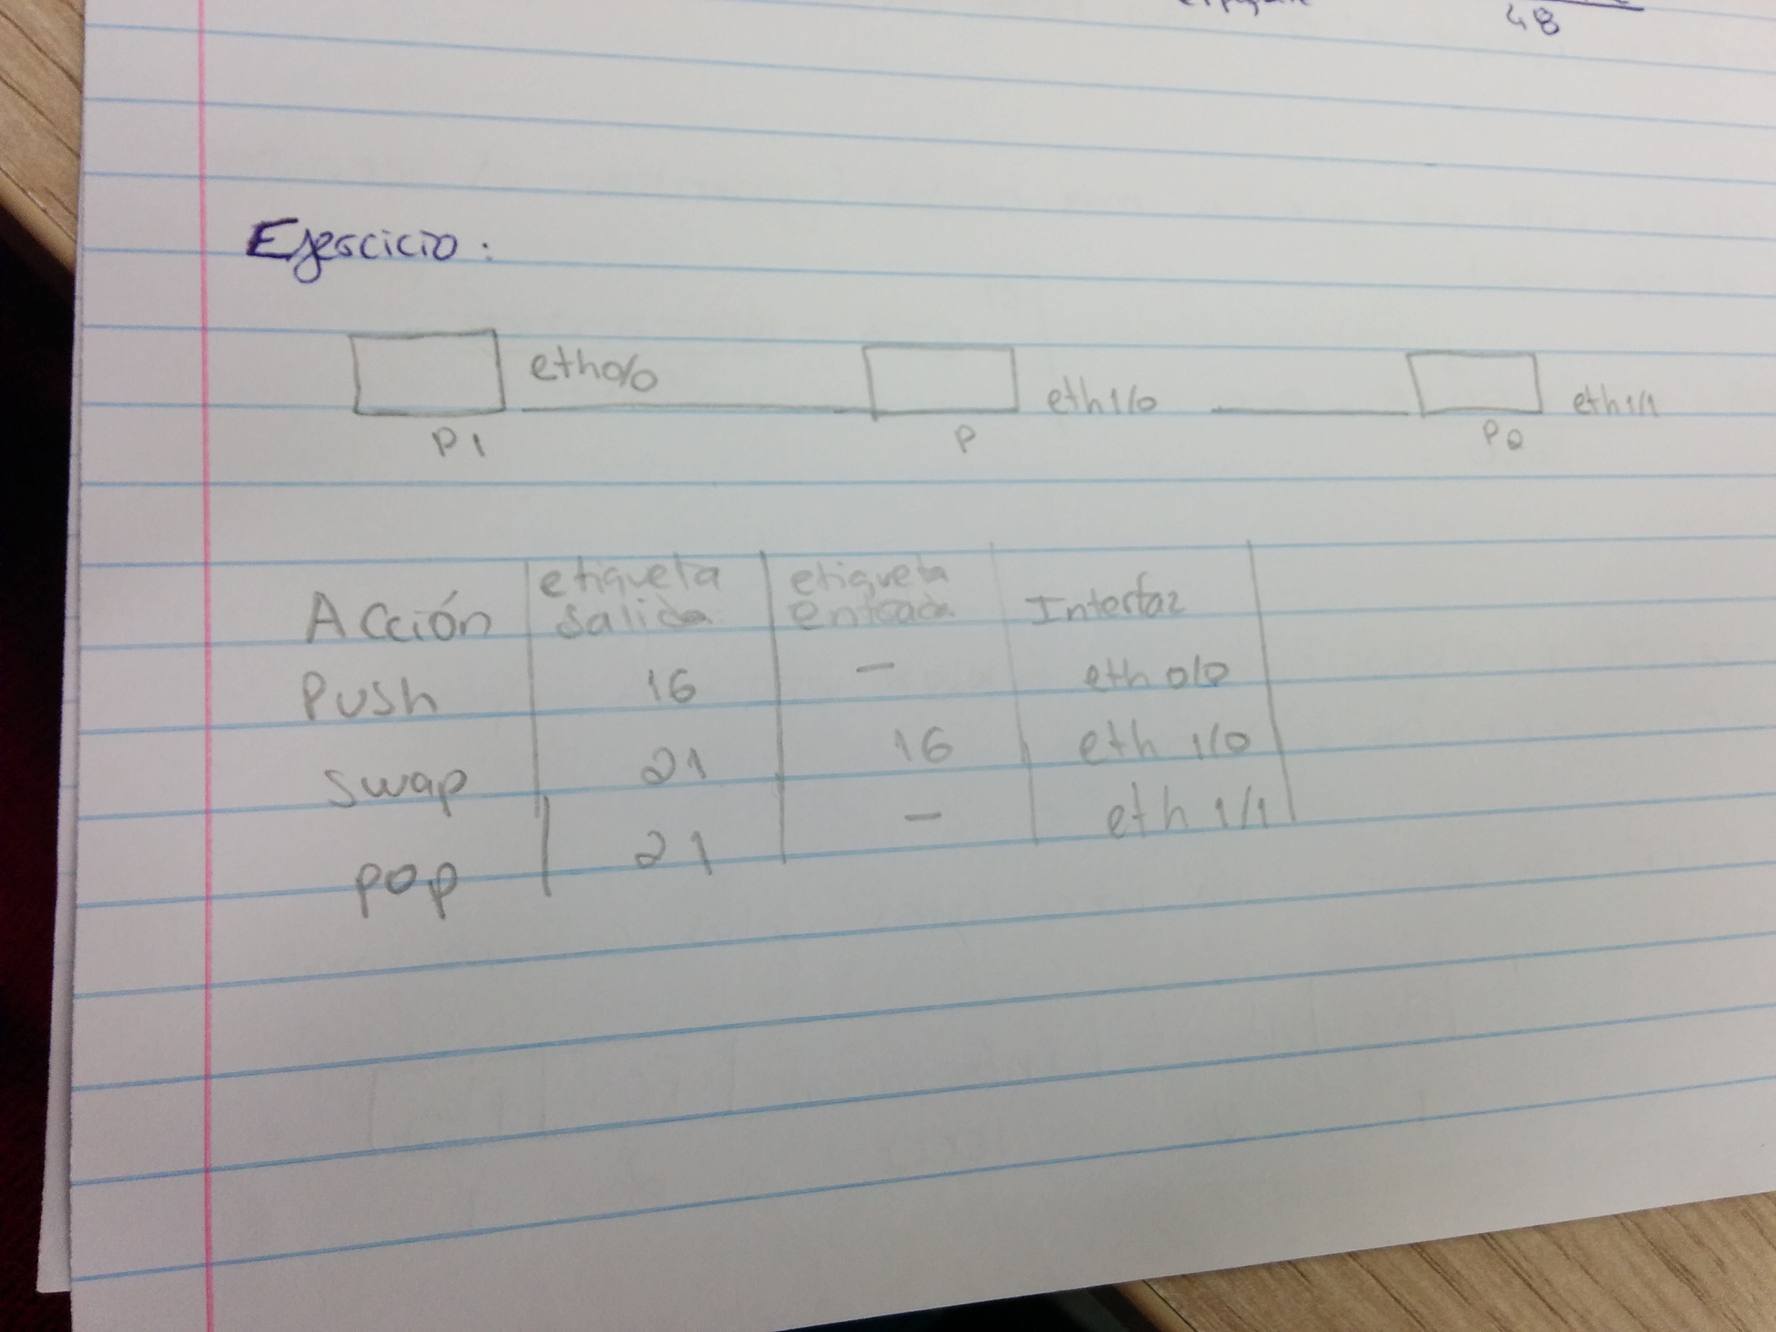 48
Ejercicio:
eth0/0 eth1/0 eth1/1
P1 P P2
Acción etiqueta salida etiqueta entrada Interfaz
Push 16 - eth 0/0
swap 21 16 eth 1/0
pop 21 - eth 1/1